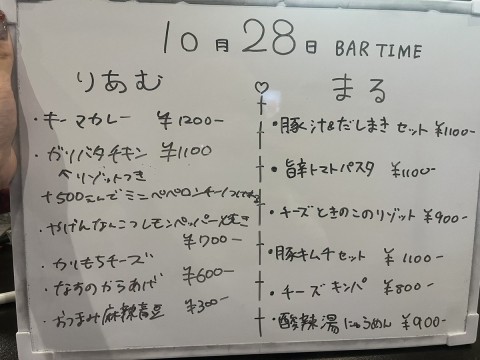 10月28日 BAR TIME
りあむ
・キーマカレー ¥1200-
・ガリバタチキン ¥1100
↖リゾットつき
+500えんでミニペペロンチーノつけれます
・やげんなんこつレモンペッパー焼き
¥700-
・カリもちチーズ
¥600-
・なすのからあげ
・おつまみ麻辣青豆 ¥300-
♡
まる
・豚汁&だしまきセット ¥1100-
・旨辛トマトパスタ ¥1100-
・チーズときのこのリゾット ¥900-
・豚キムチセット ¥1100-
・チーズキンパ ¥800-
・酸辣湯にゅうめん ¥900-